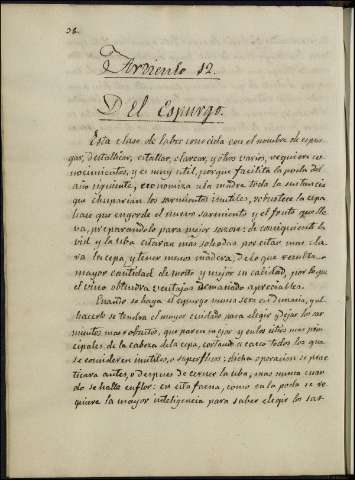 Artículo 12.
Del Espurgo.
Esta clase de labor conocida con el nombre de espur-
gar, destallicar, estallar, clarear, y otros varios, requiere co-
nocimientos, y es muy util, porque facilita la poda del
año siguiente, economiza a la madre toda la sustancia
que chuparian los sarmientos inutiles, robustece la cepa
hace que engorde el nuevo sarmiento y el fruto que lle-
va, preparandolo para mejor sazon: de consiguiente la
vid y la uba estaran mas soleadas por estar mas cla-
ra la cepa, y tener menos madera; de lo que resulta
mayor cantidad de mosto y mejor su calidad, por lo que
el vino obtendra ventajas demasiado apreciables.
Cuando se haga el espurgo nunca sera en demasia, y al
hacerlo se tendra el mayor cuidado para elegir y dejar los sar-
mientos mas robustos, que paren mejor y en los sitios mas prin-
cipales de la cabeza de la cepa, cortando a casco todos los que
se consideren inutiles, o superfluos: dicha operacion se prac-
ticara antes, o despues de cerner la uba, mas nunca cuan-
do se halla en flor: en esta faena, como en la poda se re-
quiere la mayor inteligencia para saber elegir los sar-